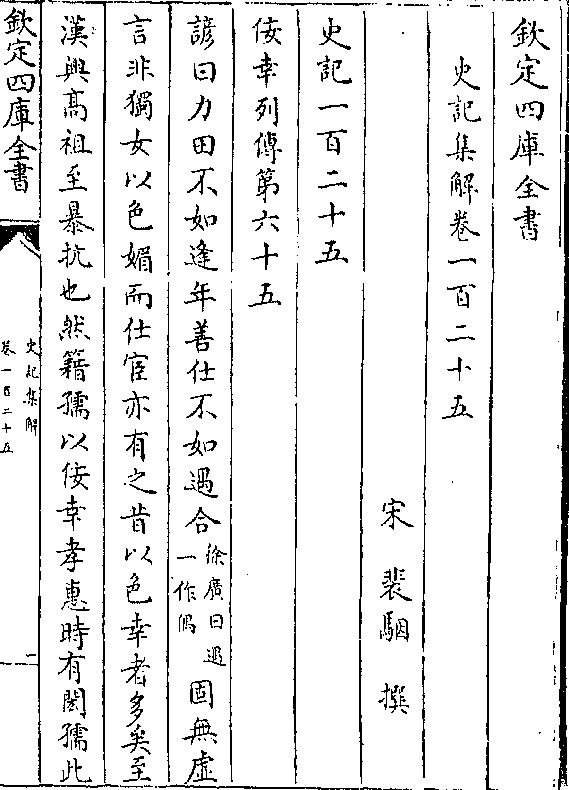 欽定四庫全書
史記集解卷一百二十五
宋裴駰撰
史記一百二十五
佞幸列傳第六十五
諺曰力田不如逢年善仕不如遇合徐廣曰遇一作偶固無虛
言非獨女以色媚而仕宦亦有之昔以色幸者多矣至
漢興髙祖至暴抗也然籍孺以佞幸孝惠時有閎孺此
欽定四庫全書
史記集解
卷一百二十五
一